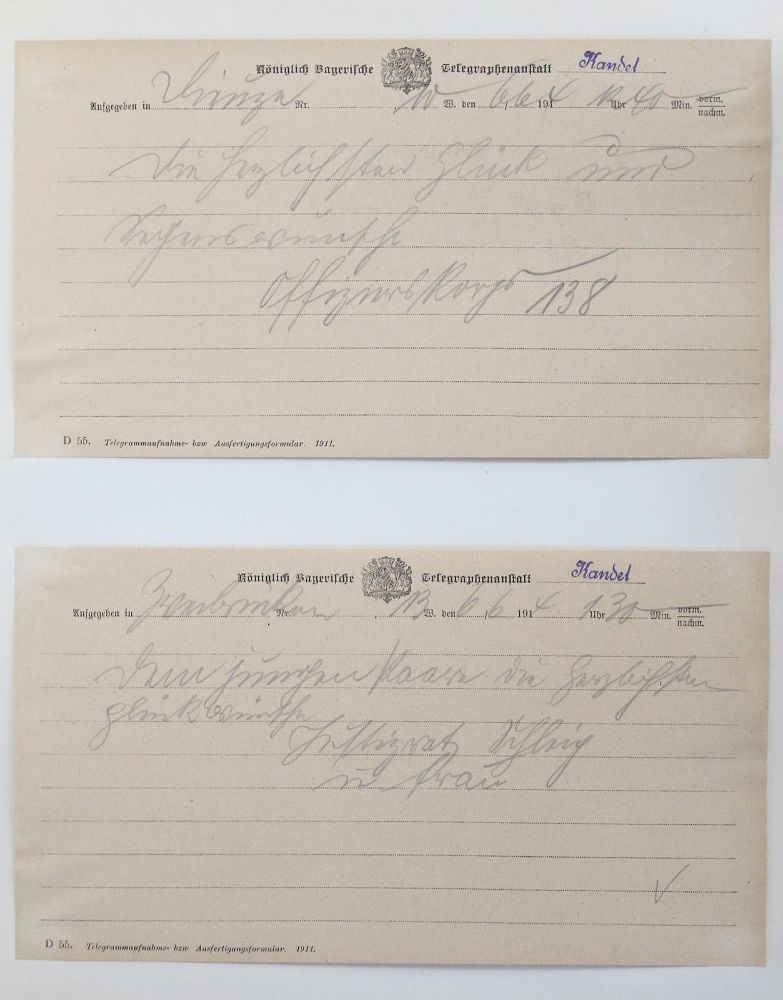 Königlich Bayerische Telegraphenanstalt Kandel
Aufgegeben in Dieuze Nr. , 10 W. den 6/6 1914 12 Uhr 40 Min. vorm. nachm.
Die herzlichsten Glück und
Segenswünsche
Offizierskorps 138
D 55. Telegrammaufnahme- bzw Ausfertigungsformular. 1911.
Königlich Bayerische Telegraphenanstalt Kandel
Aufgegeben in Zweibrücken Nr. , W. den 6/6 1914 1 Uhr 30 Min. vorm. nachm.
Dem jungen Paare die herzlichsten
Glückwünsche
Justizrat
u Frau
D 55. Telegrammaufnahme- bzw Ausfertigungsformular. 1911.